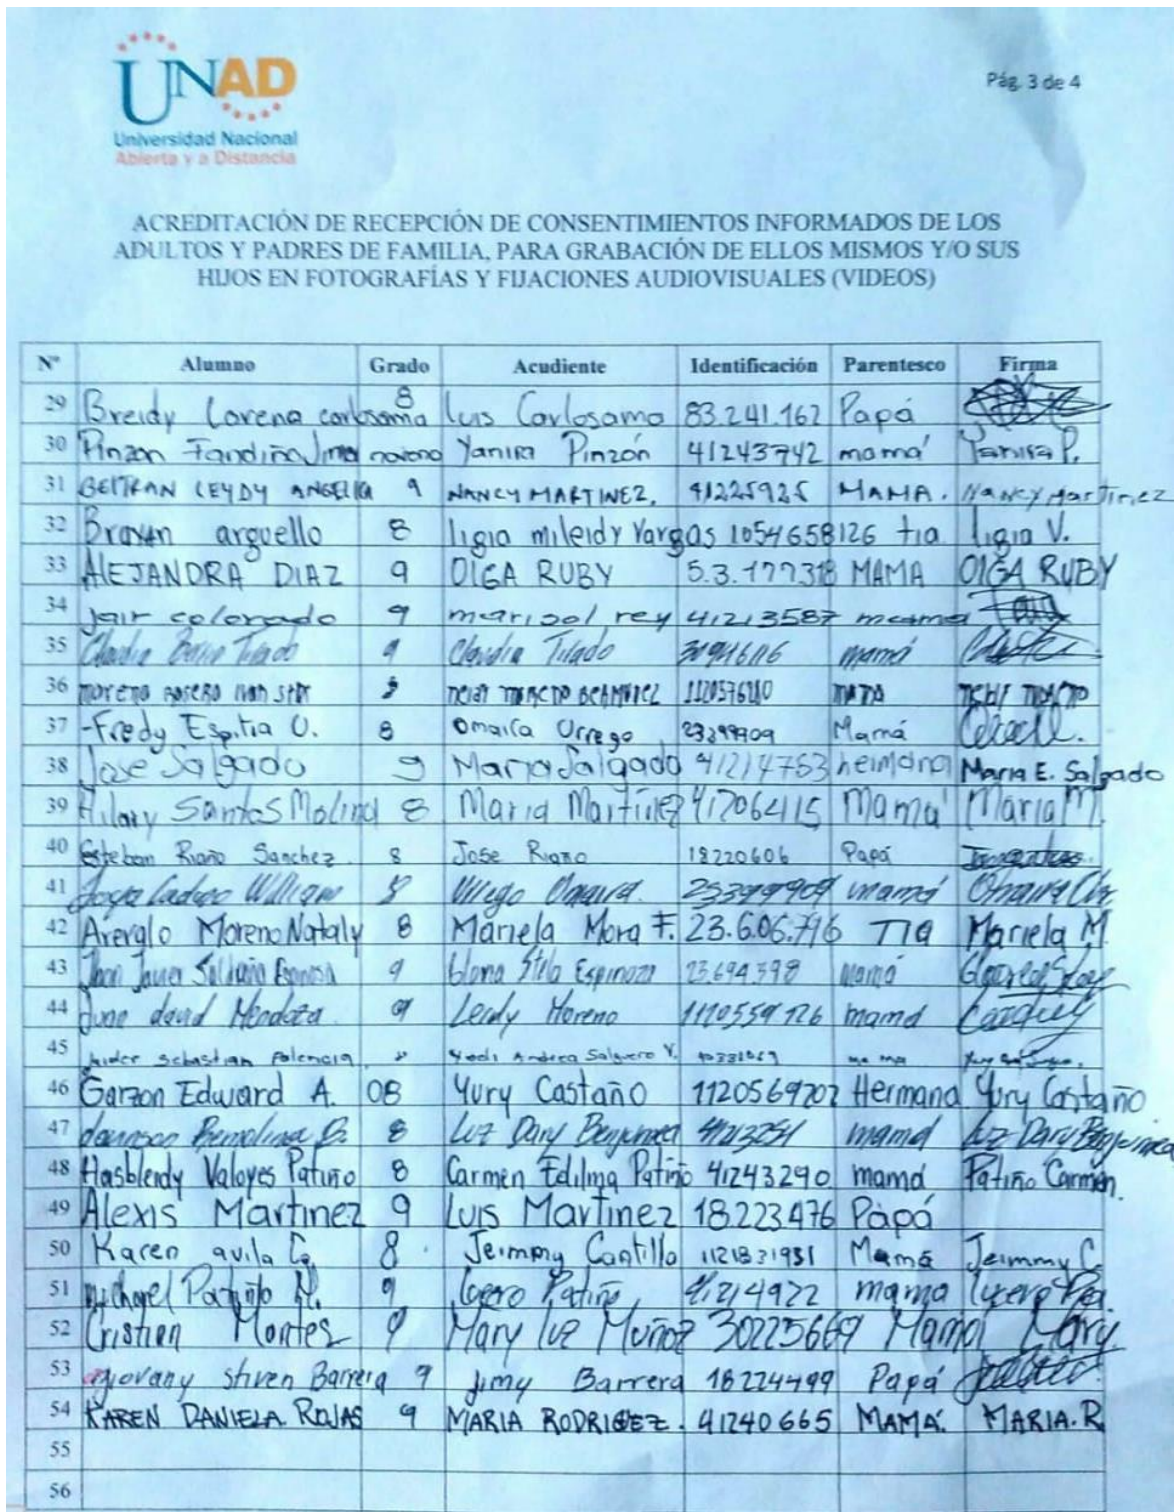 UNAD
Universidad Nacional
Abierta y a Distancia
Pág. 3 de 4
ACREDITACIÓN DE RECEPCIÓN DE CONSENTIMIENTOS INFORMADOS DE LOS
ADULTOS Y PADRES DE FAMILIA, PARA GRABACIÓN DE ELLOS MISMOS Y/O SUS
HIJOS EN FOTOGRAFÍAS Y FIJACIONES AUDIOVISUALES (VIDEOS)
Nº Alumno Grado Acudiente Identificación Parentesco Firma
29 Breidy Lorena carlosama 8 Luis Carlosama 83.241.162 Papá
30 Pinzon Fandiño noveno Yanira Pinzón 41243742 mamá Yanira P.
31 BELTRAN LEYDY ANGELICA 9 NANCY MARTINEZ. 41225925 MAMA. Nancy Martinez
32 Brayan arguello 8 ligia mileidy Vargas 1054658126 tia ligia V.
33 ALEJANDRA DIAZ 9 OlGA RUBY 5.3.177318 MAMA OlGA RUBY
34 jair colorado 9 marisol rey 41213587 mama
35 Claudia 9 Claudia mamá
36 moreno rosero 8
37 -Fredy Espitia U. 8 Omaira Urrego 23399909 Mamá
38 Jose Salgado 9 Maria Salgado 41214753 heimana Maria E. Salgado
39 Hilary Santos Molina 8 Maria Martinez 412064115 Mamá Maria M.
40 Esteban Riaño Sanchez. 8 Jose Riaño 18220606 Papá
41 William 8 23399909 mamá
42 Arevalo Moreno Nataly 8 Mariela Mora F. 23.606.796 TIa Mariela M
43 Javier 9 Stela Espinoza 23.694.398 Mamá
44 Juan david Mendoza 9 Leidy Moreno 1120559726 mamá
45 sebastian Palencia 8 Andrea Salguero V. mama
46 Garzon Edward A. 08 Yury Castaño 1120569702 Hermana Yury Castaño
47 8 Luz Dary Benjumea mamá Luz Dary Benjumea
48 Hasbleidy Valoyes Patiño 8 Carmen Edilma Patiño 41243290 mamá Patiño Carmen.
49 Alexis Martinez 9 Luis Martinez 18223476 Papá
50 Karen avila C. 8 Jeimmy Cantillo 1121831951 Mamá Jeimmy C.
51 michael Patiño 9 lucero Patiño 41214922 mama
52 Cristian Montes 9 Mary luz Muñoz 30225669 Mamá Mary.
53 giovany stiven Barrera 9 jimy Barrera 18224499 Papá
54 KAREN DANIELA ROJAS 9 MARIA RODRIGEZ. 41240665 MAMÁ. MARIA.R
55
56